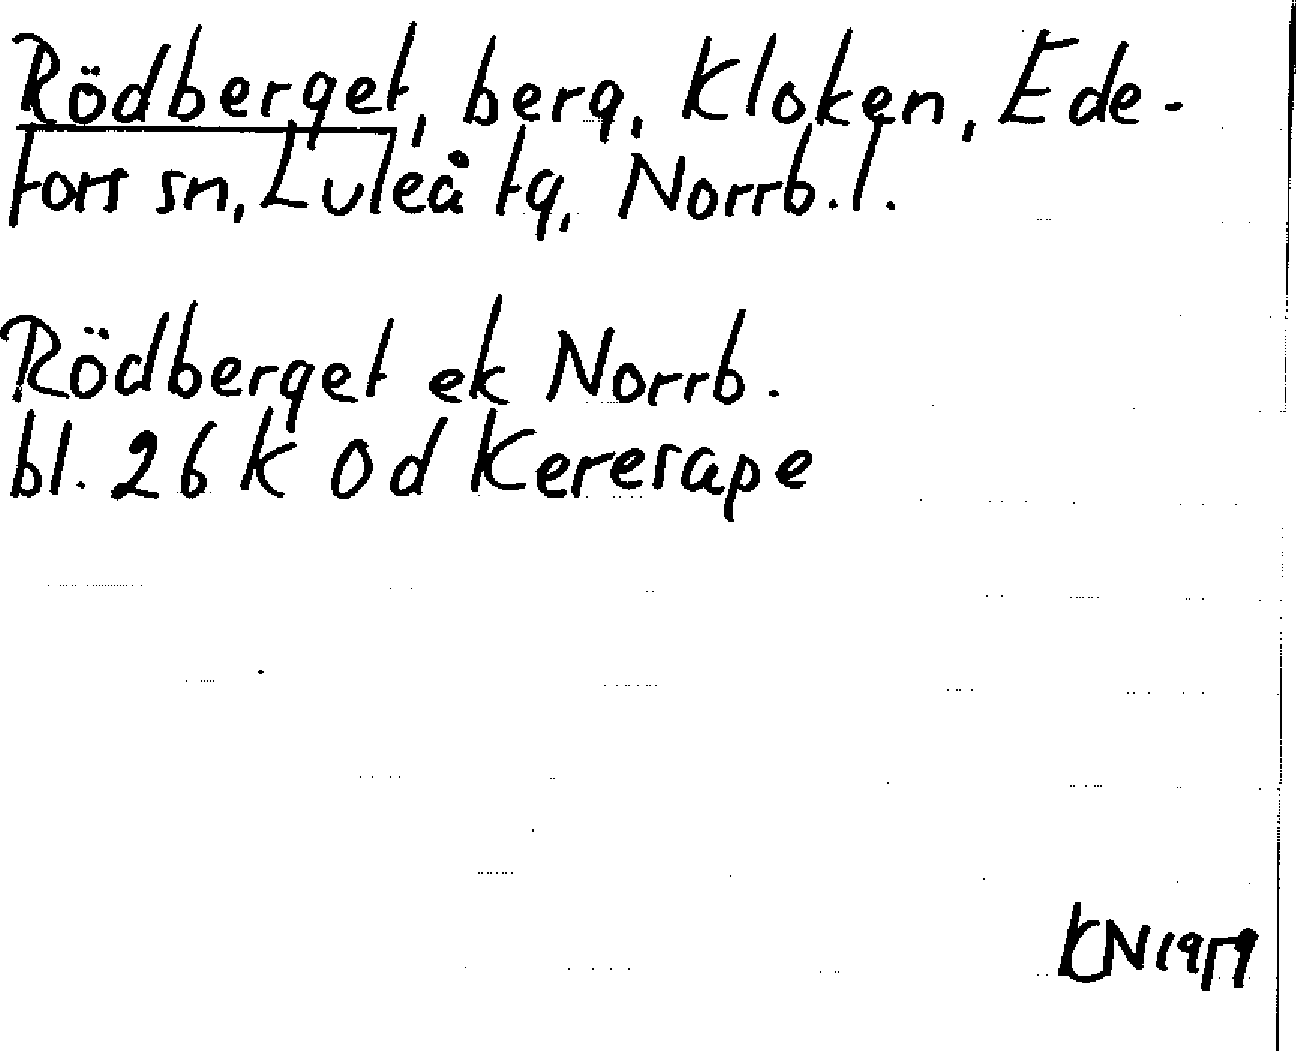 Rödberget, berg, Kloken, Ede-
fors sn, Luleå tg, Norrb. l.
Rödberget ek Norrb.
bl. 26 k Od Keresape
KN 1959